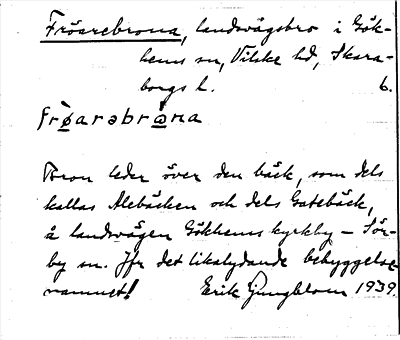 Fröarebrona, landsvägsbro i Gök-
hems sn, Vilske hd, Skara-
borgs l. 6.
frø̀arəbrɷ̀na
Bron leder över den bäck, som dels
kallas Alebäcken och dels Gatebäck,
å landsvägen Gökhems kyrkby – Sör-
by sn. Jfr det likalydande bebyggelse-
namnet! Erik Ljungblom 1939.